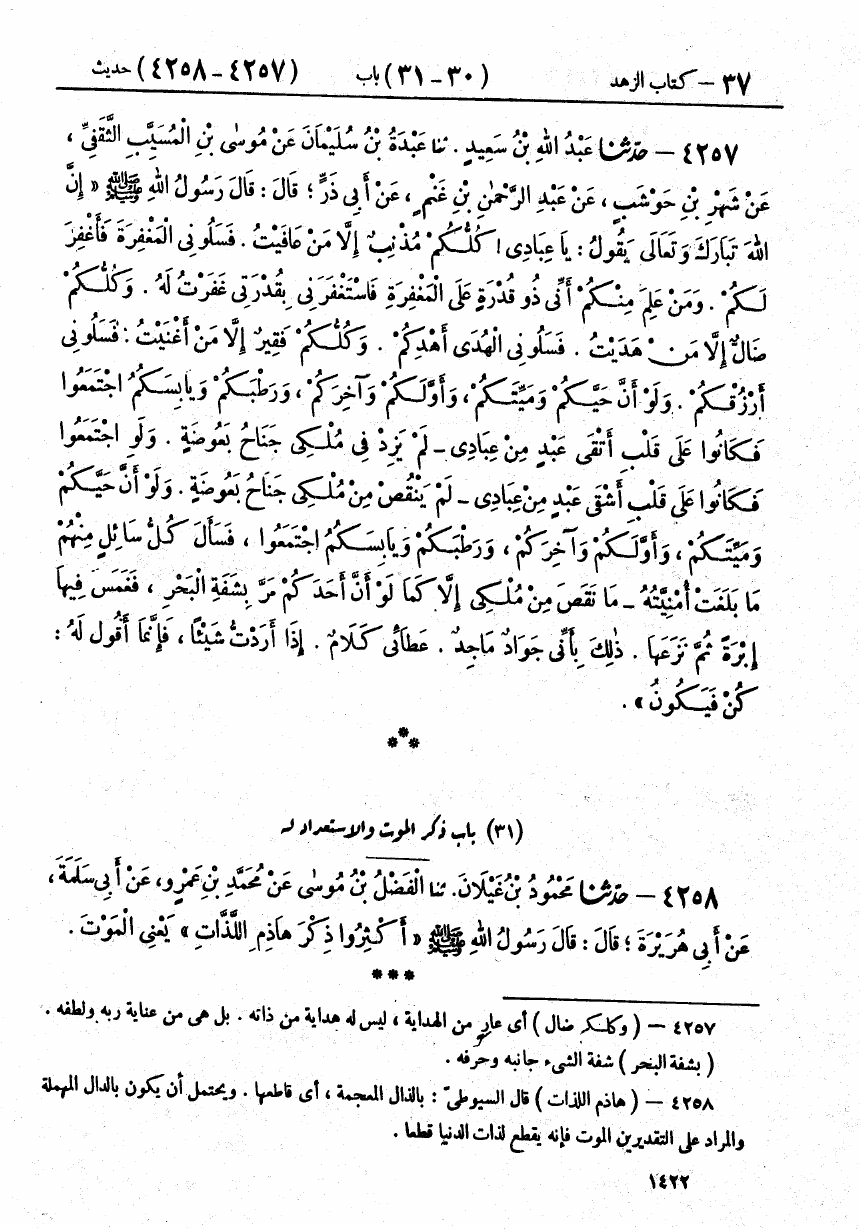 ٣٧ – كتاب الزهد (٣٠ – ٣١) باب (٤٢٥٧ – ٤٢٥٨) حديث
٤٢٥٧ – حَدَّثَنَا عَبْدُ اللهِ بْنُ سَعِيدٍ . ثنا عَبْدَةُ بْنُ سُلَيْمَانَ عَنْ مُوسٰى بْنِ الْمُسَيَّبِ الثَّقَفِيِّ ،
عَنْ شَهْرِ بْنِ حَوْشَبٍ ، عَنْ عَبْدِ الرَّحْمٰنِ بْنِ غَنْمٍ ، عَنْ أَبِي ذَرٍّ ؛ قَالَ : قَالَ رَسُولُ اللهِ ﷺ « إِنَّ
اللهَ تَبَارَكَ وَتَعَالَى يَقُولُ : يَا عِبَادِى ! كُلُّكُمْ مُذْنِبٌ إِلَّا مَنْ عَافَيْتُ . فَسَلُونِى الْمَغْفِرَةَ فَأَغْفِرَ
لَكُمْ . وَمَنْ عَلِمَ مِنْكُمْ أَنِّى ذُو قُدْرَةٍ عَلَى الْمَغْفِرَةِ فَاسْتَغْفَرَنِى بِقُدْرَتِى غَفَرْتُ لَهُ . وَكُلُّكُمْ
ضَالٌّ إِلَّا مَنْ هَدَيْتُ . فَسَلُونِى الْهُدَى أَهْدِكُمْ . وَكُلُّكُمْ فَقِيرٌ إِلَّا مَنْ أَغْنَيْتُ : فَسَلُونِى
أَرْزُقْكُمْ . وَلَوْ أَنَّ حَيَّكُمْ وَمَيِّتَكُمْ ، وَأَوَّلَكُمْ وَآخِرَكُمْ ، وَرَطْبَكُمْ وَيَابِسَكُمُ اجْتَمَعُوا
فَكَانُوا عَلَى قَلْبِ أَتْقَى عَبْدٍ مِنْ عِبَادِى – لَمْ يَزِدْ فِى مُلْكِى جَنَاحُ بَعُوضَةٍ . وَلَوِ اجْتَمَعُوا
فَكَانُوا عَلَى قَلْبِ أَشْقَى عَبْدٍ مِنْ عِبَادِى – لَمْ يَنْقُصْ مِنْ مُلْكِى جَنَاحُ بَعُوضَةٍ . وَلَوْ أَنَّ حَيَّكُمْ
وَمَيِّتَكُمْ ، وَأَوَّلَكُمْ وَآخِرَكُمْ ، وَرَطْبَكُمْ وَيَابِسَكُمُ اجْتَمَعُوا ، فَسَأَلَ كُلُّ سَائِلٍ مِنْهُمْ
مَا بَلَغَتْ أُمْنِيَّتُهُ – مَا نَقَصَ مِنْ مُلْكِى إِلَّا كَمَا لَوْ أَنَّ أَحَدَكُمْ مَرَّ بِشَفَةِ الْبَحْرِ ، فَغَمَسَ فِيهَا
إِبْرَةً ثُمَّ نَزَعَهَا . ذٰلِكَ بِأَنِّى جَوَادٌ مَاجِدٌ . عَطَائِى كَلَامٌ . إِذَا أَرَدْتُ شَيْئًا ، فَإِنَّمَا أَقُولُ لَهُ :
كُنْ فَيَكُونُ » .
***
(٣١) باب ذكر الموت والاستعداد له
٤٢٥٨ – حَدَّثَنَا مَحْمُودُ بْنُ غَيْلَانَ . ثنا الْفَضْلُ بْنُ مُوسٰى عَنْ مُحَمَّدِ بْنِ عَمْرٍو ، عَنْ أَبِى سَلَمَةَ ،
عَنْ أَبِى هُرَيْرَةَ ؛ قَالَ : قَالَ رَسُولُ اللهِ ﷺ « أَكْثِرُوا ذِكْرَ هَاذِمِ اللَّذَّاتِ » يَعْنِى الْمَوْتَ .
***
٤٢٥٧ – ( وكلكم ضال ) أى عار من الهداية ، ليس له هداية من ذاته . بل هى من عناية ربه ولطفه .
( بشفة البحر ) شفة الشىء جانبه وحرفه .
٤٢٥٨ – ( هاذم اللذات ) قال السيوطىّ : بالذال المعجمة ، أى قاطعها . ويحتمل أن يكون بالدال المهملة
والمراد على التقديرين الموت فإنه يقطع لذات الدنيا قطعا .
١٤٢٢